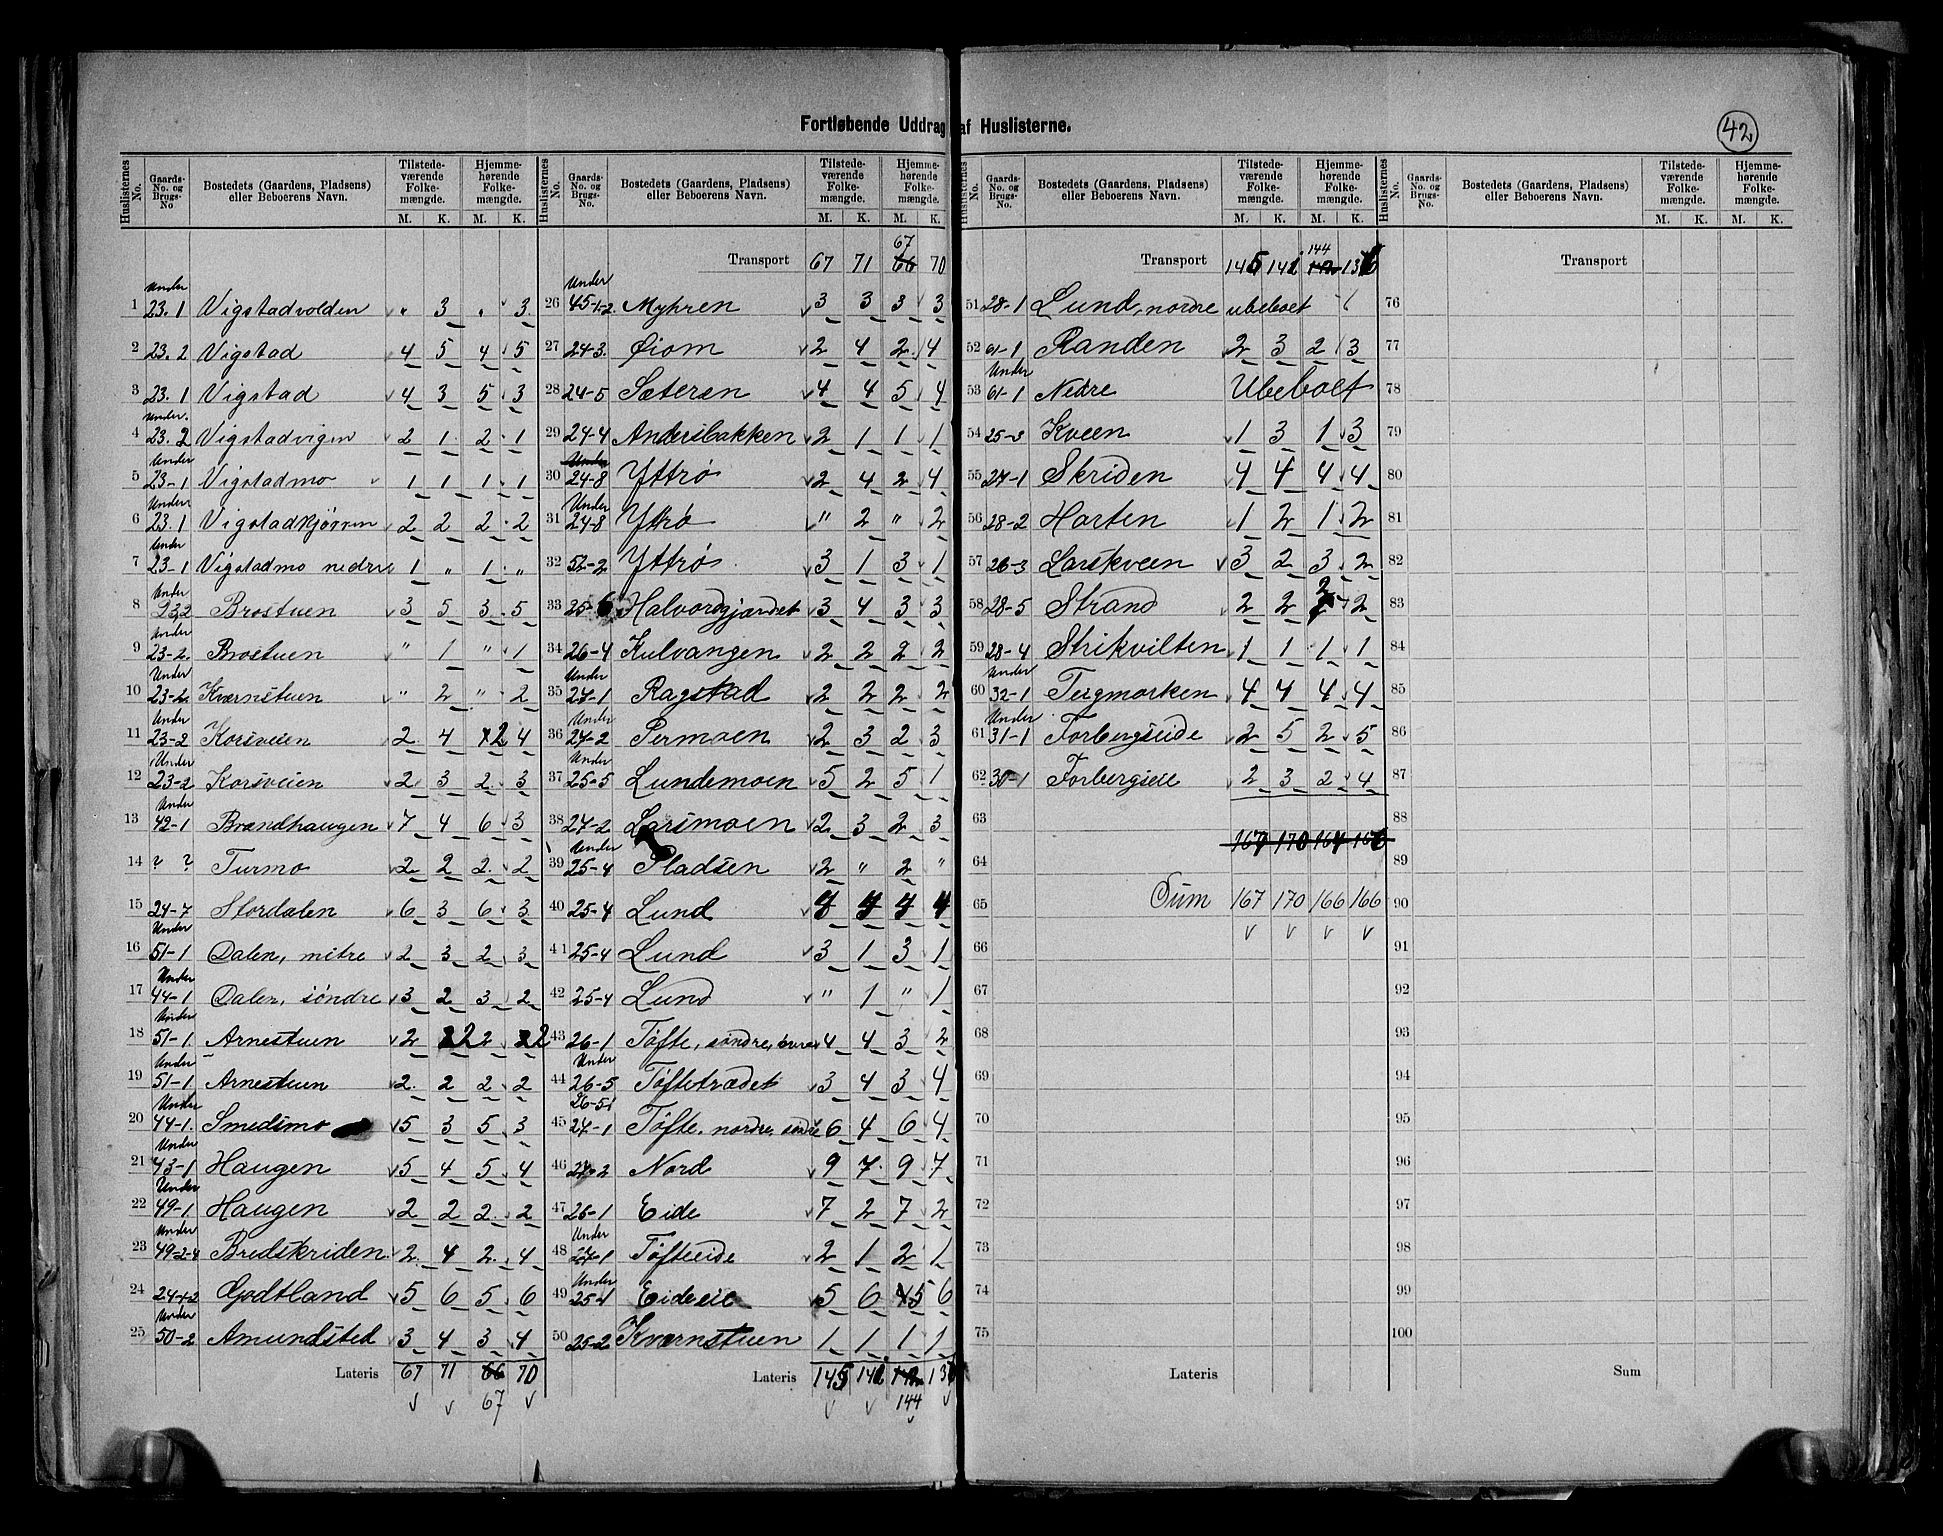 Fortløbende Uddrag af Huslisterne.
42
Huslisternes No. Gaards-No. og Brugs-No Bostedets (Gaardens, Pladsens) eller Beboerens Navn. Tilstedeværende Folkemængde. M. K. Hjemmehørende Folkemængde. M. K.
1 Under 23.1 Vigstadvolden " 3 " 3
2 23.2 Vigstad 4 5 4 5
3 23.1 Vigstad 4 3 5 3
4 Under 23.2 Vigstadvigen 2 1 2 1
5 Under 23-1 Vigstadmo 1 1 1 1
6 Under 23.1 Vigstadkjørren 2 2 2 2
7 Under 23-1 Vigstadmo nedre 1 " 1 "
8 Under 23.2 Brostuen 3 5 3 5
9 Under 23-2. Brostuen " 1 " 1
10 Under 23-2. Kværnstuen " 2 " 2
11 Under 23-2 Korsveien 2 4 2 4
12 Under 23-2 Korsveien 2 3 2 3
13 Under 42-1 Brændhaugen 7 4 6 3
14 ? ? Turmo 2 2 2 2
15 24-7 Stordalen 6 3 6 3
16 Under 51-1 Dalen, mitre 2 3 2 3
17 Under 44-1 Dalen, søndre 3 2 3 2
18 Under 51-1 Arnestuen 2 2 2 2
19 Under 51-1 Arnestuen 2 2 2 2
20 Under 44-1. Smedsmo 5 3 5 3
21 Under 43-1 Haugen 5 4 5 4
22 Under 49-1 Haugen 2 2 2 2
23 Under 49-2-4 Bredskriden 2 4 2 4
24 Godtland 5 6 5 6
25 Under 50-2 Amundsted 3 4 3 4
Lateris 67 71 66 70
67
Huslisternes No. Gaards-No. og Brugs-No. Bostedets (Gaardens, Pladsens) eller Beboerens Navn. Tilstedeværende Folkemængde. M. K. Hjemmehørende Folkemængde. M. K.
67
Transport 67 71 66 70
26 Under 45-1-2. Myhren 3 3 3 3
27 24-3. Øiom 2 4 2 4
28 24-5 Sæteren 4 4 5 4
29 24-4 Andersbakken 2 1 1 1
30 Under 24-8 Yttrø 2 4 2 4
31 Under 24-8 Yttrø " 2 " 2
32 52-2 Yttrø 3 1 3 1
33 25-6 Halvordgjærdet 3 4 3 3
34 26-4 Kulvangen 2 2 2 2
35 Under 24-1 Ragstad 2 2 2 2
36 Under 24-2 Permoen 2 3 2 3
37 Under 25-5 Lundemoen 5 2 5 1
38 27-2 Larsmoen 2 3 2 3
39 Under 25-4 Pladsen 2 " 2 "
40 25-4 Lund
41 25-4 Lund 3 1 3 1
42 25-4 Lund " 1 " 1
43 26-1 Tøfte, søndre, 4 4 3 2
44 Under 26-5 Tøftetrædet 3 4 3 4
45 26-51 27-1 Tøfte, nordre, søndre 6 4 6 4
46 Nord 9 7 9 7
47 26-1 Eide 7 2 7 2
48 Under 27-1 Tøfteeide 2 1 2 1
49 Under Eideeie 5 6 5 6
50 25-2 Kværnstuen 1 1 1 1
Lateris 145 142
144
Huslisternes No. Gaards-No. og Brugs-No. Bostedets (Gaardens, Pladsens) eller Beboerens Navn. Tilstedeværende Folkemængde. M. K. Hjemmehørende Folkemængde. M. K.
144
Transport 145
51 28-1 Lund, nordre ubeboet
52 61-1 Randen 2 3 2 3
53 Under 61-1 Nedre Ubeboet
54 25-3 Kveen 1 3 1 3
55 27-1 Skriden 4 4 4 4
56 28-2 Harten 1 2 1 2
57 26-3 Larskveen 3 2 3 2
58 28-5 Strand 2 2 2 2
59 28-4 Strikvilten 1 1 1 1
60 Under 32-1 Tegmorken 4 4 4 4
61 Under 31-1 Forbergseide 2 5 2 5
62 30-1 Forbergseie 2 3 2 4
63
64
65 Sum 167 170 166 166
66
67
68
69
70
71
72
73
74
75
Lateris
Huslisternes No. Gaards-No. og Brugs-No. Bostedets (Gaardens, Pladsens) eller Beboerens Navn. Tilstedeværende Folkemængde. M. K. Hjemmehørende Folkemængde. M. K.
Transport
76
77
78
79
80
81
82
83
84
85
86
87
88
89
90
91
92
93
94
95
96
97
98
99
100
Sum